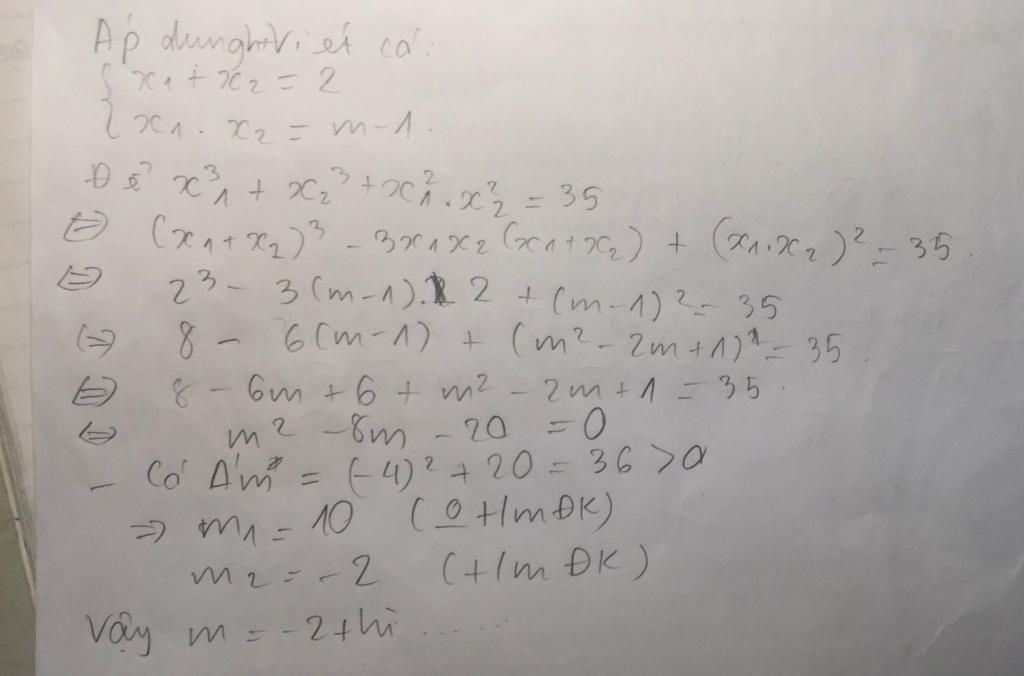 Áp dụng ht Vi et có:
{ x₁ + x₂ = 2
{ x₁ . x₂ = m - 1.
Để x₁³ + x₂³ + x₁² . x₂² = 35
⇔ (x₁ + x₂)³ - 3x₁x₂(x₁ + x₂) + (x₁.x₂)² = 35.
⇔ 2³ - 3(m-1).2 + (m-1)² = 35
⇔ 8 - 6(m-1) + (m² - 2m + 1) = 35.
⇔ 8 - 6m + 6 + m² - 2m + 1 = 35.
⇔ m² - 8m - 20 = 0
- Có Δ'm = (-4)² + 20 = 36 > 0
⇒ m₁ = 10 (0 t/m ĐK)
m₂ = -2 (t/m ĐK)
Vậy m = -2 thì ......